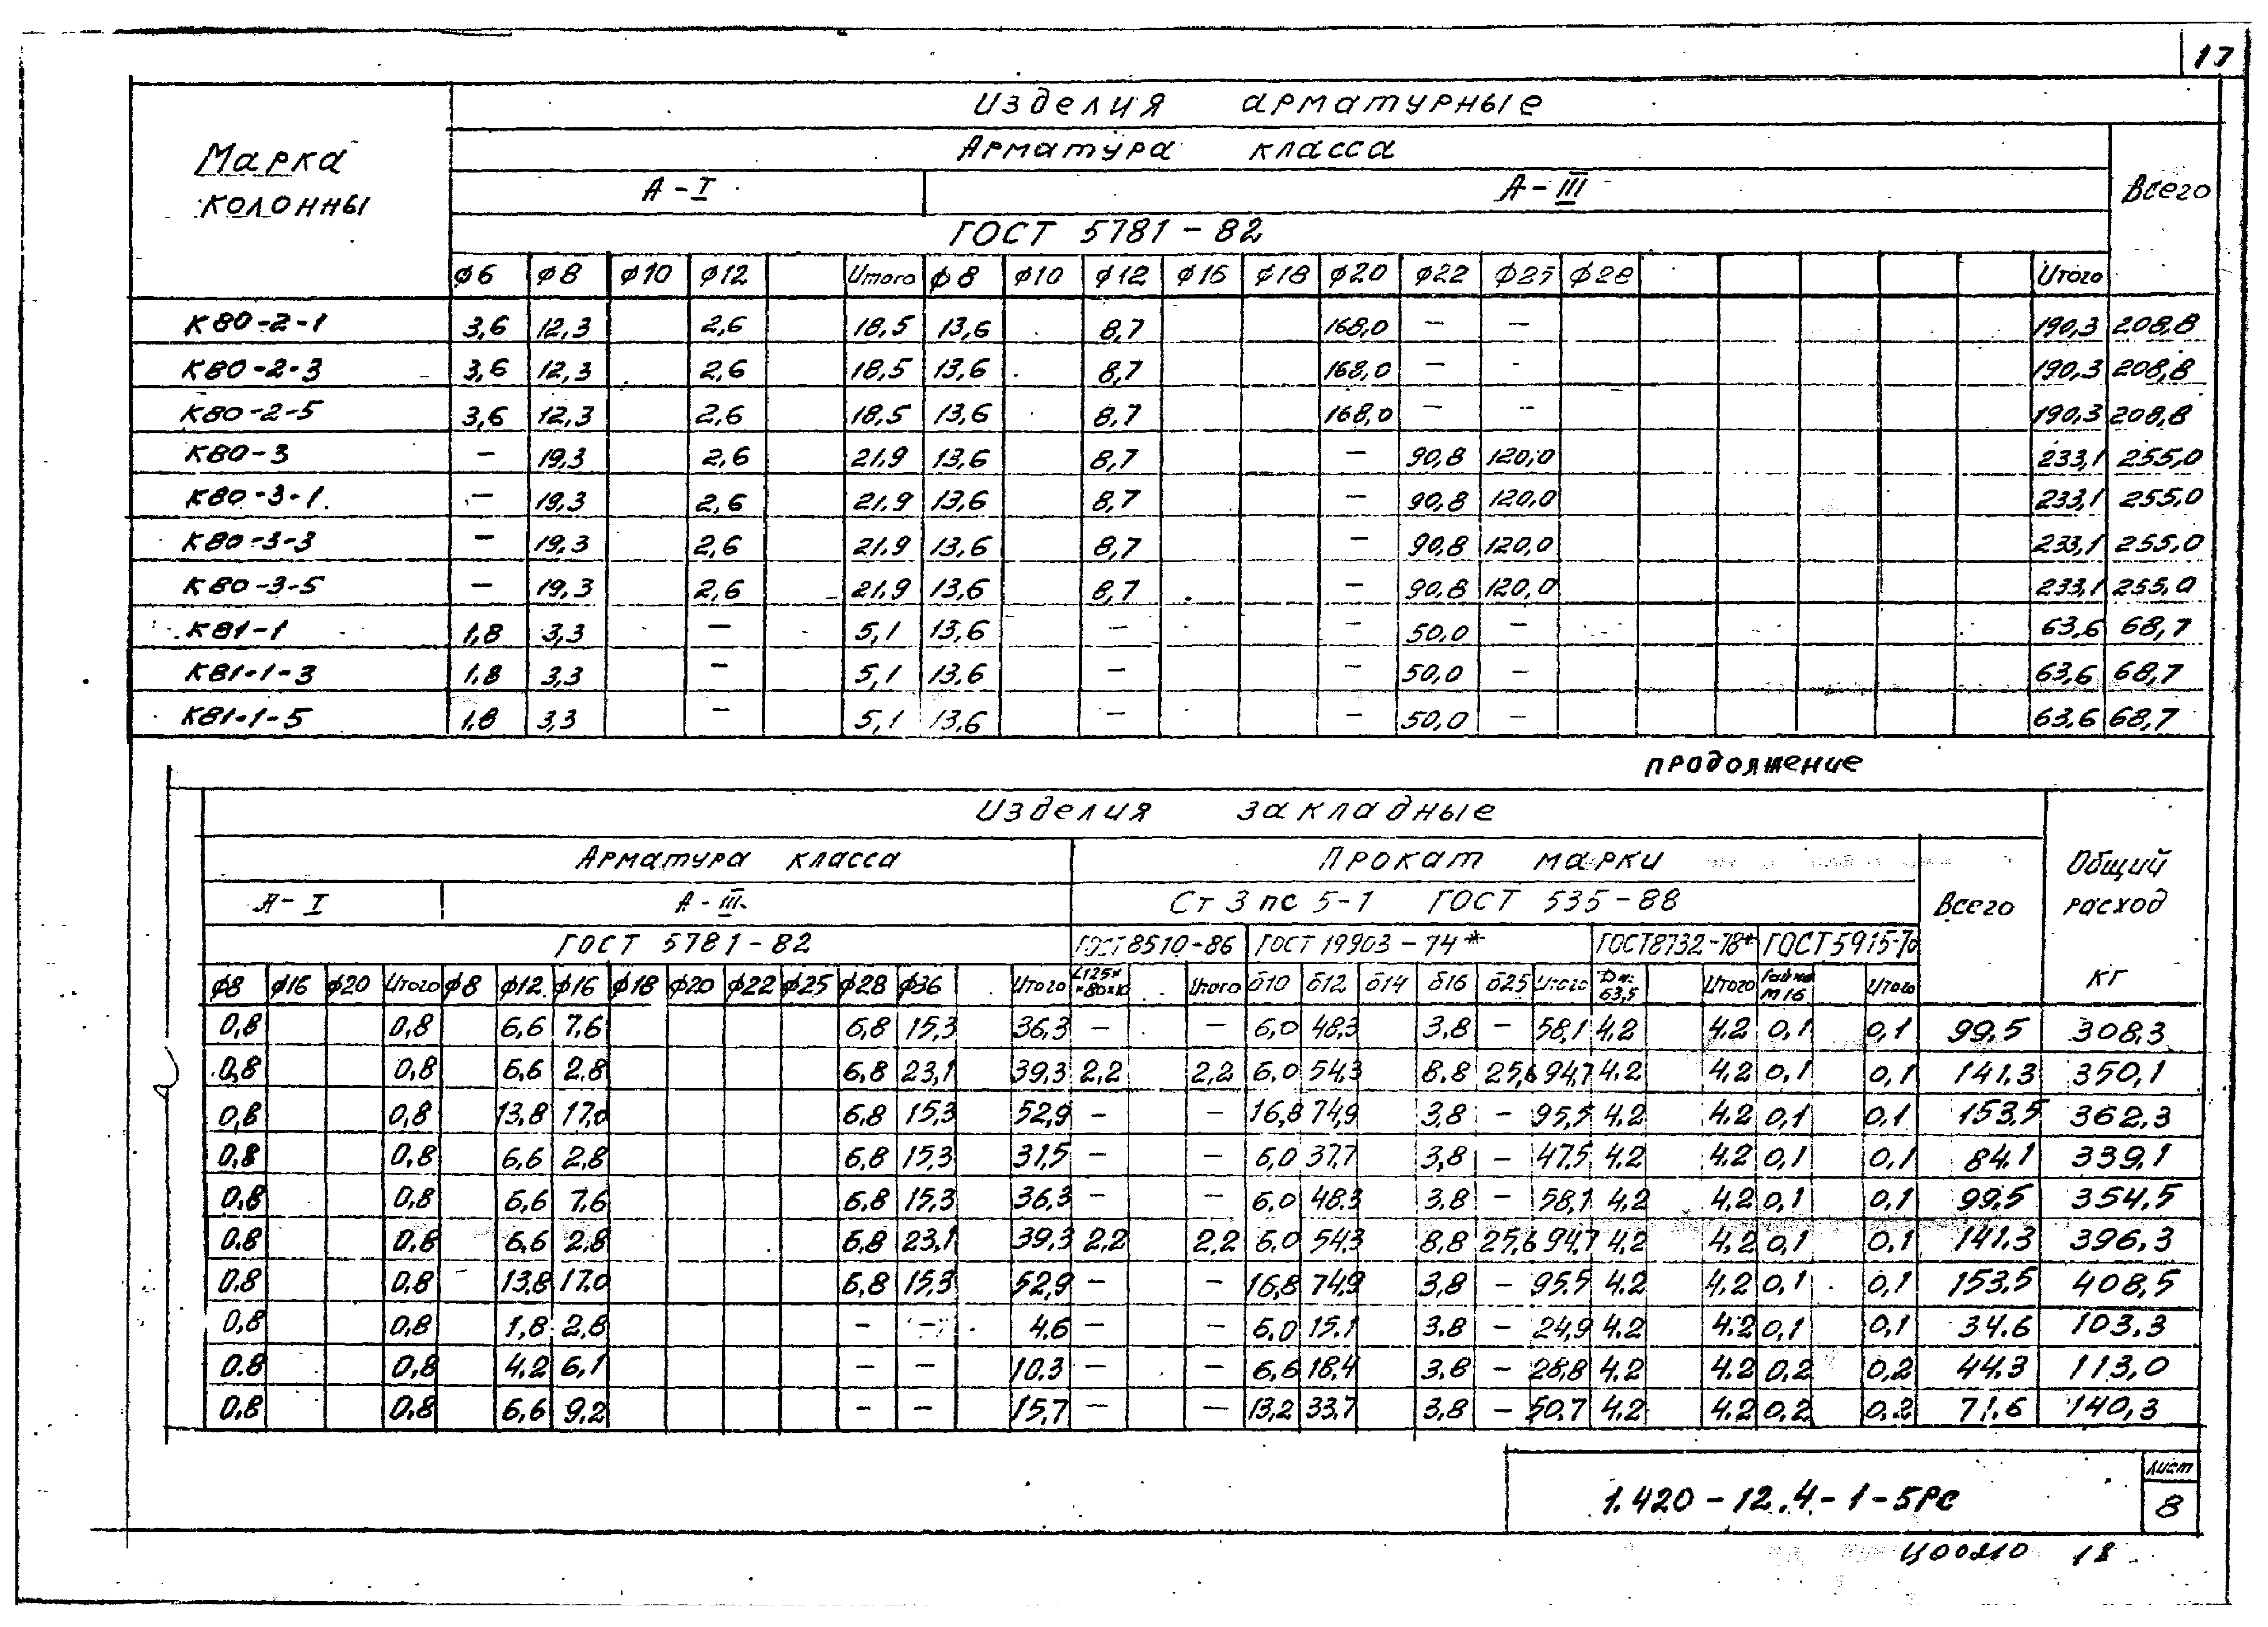 17
Изделия арматурные
Марка колонны
Арматура класса
Всего
А-I А-III
ГОСТ 5781-82
ф6 ф8 ф10 ф12 Итого ф8 ф10 ф12 ф16 ф18 ф20 ф22 ф25 ф28 Итого
К80-2-1 3,6 12,3 2,6 18,5 13,6 8,7 168,0 — — 190,3 208,8
К80-2-3 3,6 12,3 2,6 18,5 13,6 8,7 168,0 — - 190,3 208,8
К80-2-5 3,6 12,3 2,6 18,5 13,6 8,7 168,0 — -- 190,3 208,8
К80-3 — 19,3 2,6 21,9 13,6 8,7 — 90,8 120,0 233,1 255,0
К80-3-1. — 19,3 2,6 21,9 13,6 8,7 — 90,8 120,0 233,1 255,0
К80-3-3 — 19,3 2,6 21,9 13,6 8,7 — 90,8 120,0 233,1 255,0
К80-3-5 — 19,3 2,6 21,9 13,6 8,7 — 90,8 120,0 233,1 255,0
К81-1 1,8 3,3 — 5,1 13,6 — — 50,0 — 63,6 68,7
К81-1-3 1,8 3,3 — 5,1 13,6 — — 50,0 — 63,6 68,7
К81-1-5 1,8 3,3 — 5,1 13,6 — — 50,0 — 63,6 68,7
продолжение
Изделия закладные
Арматура класса Прокат марки
Всего
Общий расход кг
А-I А-III Ст 3 пс 5-1 ГОСТ 535-88
ГОСТ 5781-82 ГОСТ 8510-86 ГОСТ 19903-74* ГОСТ 8732-78* ГОСТ 5915-70
ф8 ф16 ф20 Итого ф8 ф12 ф16 ф18 ф20 ф22 ф25 ф28 ф36 Итого L125××80×10 Итого δ10 δ12 δ14 δ16 δ25 Итого Dн: 63,5 Итого Гайка М16 Итого
0,8 0,8 6,6 7,6 6,8 15,3 36,3 — — 6,0 48,3 3,8 — 58,1 4,2 4,2 0,1 0,1 99,5 308,3
0,8 0,8 6,6 2,8 6,8 23,1 39,3 2,2 2,2 6,0 54,3 8,8 25,6 94,7 4,2 4,2 0,1 0,1 141,3 350,1
0,8 0,8 13,8 17,0 6,8 15,3 52,9 — — 16,8 74,9 3,8 — 95,5 4,2 4,2 0,1 0,1 153,5 362,3
0,8 0,8 6,6 2,8 6,8 15,3 31,5 — — 6,0 37,7 3,8 — 47,5 4,2 4,2 0,1 0,1 84,1 339,1
0,8 0,8 6,6 7,6 6,8 15,3 36,3 — — 6,0 48,3 3,8 — 58,1 4,2 4,2 0,1 0,1 99,5 354,5
0,8 0,8 6,6 2,8 6,8 23,1 39,3 2,2 2,2 6,0 54,3 8,8 25,6 94,7 4,2 4,2 0,1 0,1 141,3 396,3
0,8 0,8 13,8 17,0 6,8 15,3 52,9 — — 16,8 74,9 3,8 — 95,5 4,2 4,2 0,1 0,1 153,5 408,5
0,8 0,8 1,8 2,8 — — 4,6 — — 6,0 15,1 3,8 — 24,9 4,2 4,2 0,1 0,1 34,6 103,3
0,8 0,8 4,2 6,1 — — 10,3 — — 6,6 18,4 3,8 — 28,8 4,2 4,2 0,2 0,2 44,3 113,0
0,8 0,8 6,6 9,2 — — 15,7 — — 13,2 33,7 3,8 — 50,7 4,2 4,2 0,2 0,2 71,6 140,3
1.420-12.4-1-5РС
лист
8
Ц00210 18